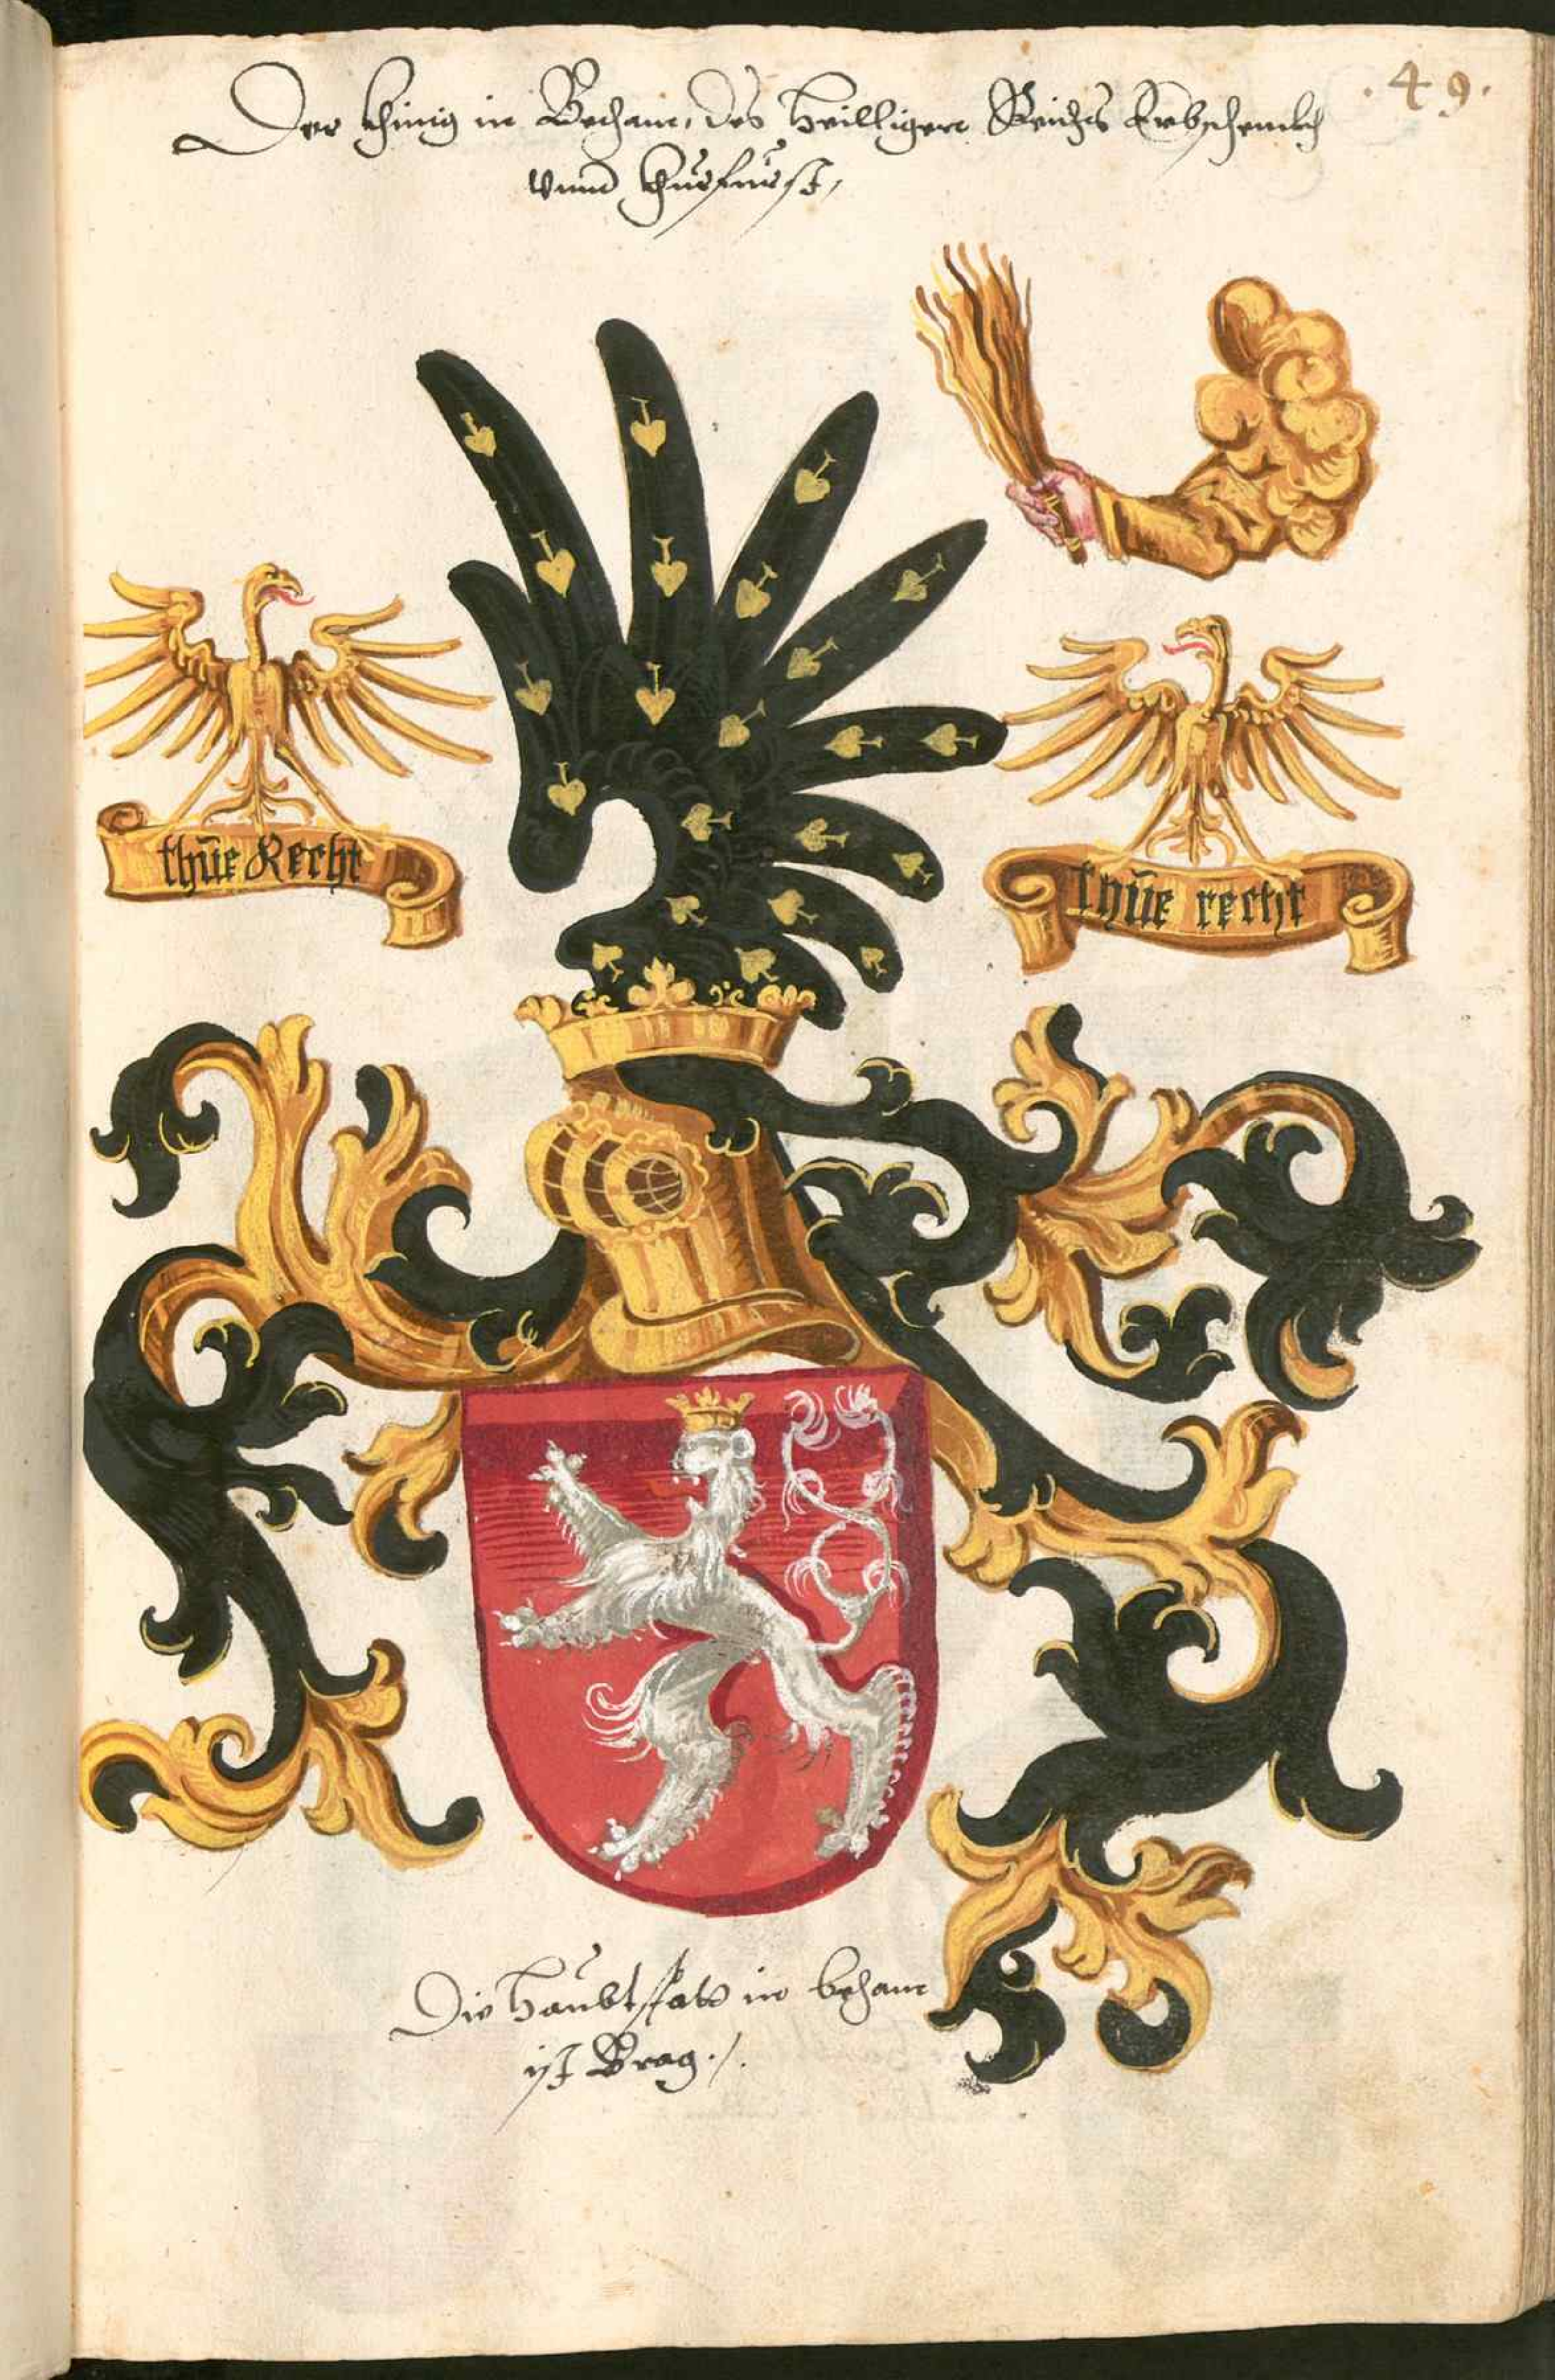 .49.
Der Khinig in Behaim, des Heilligen Reichs Erbschennkh
vnnd Churfürst,
thüe Recht
thüe recht
Die Haubtstatt in behaim
ist Brag./.